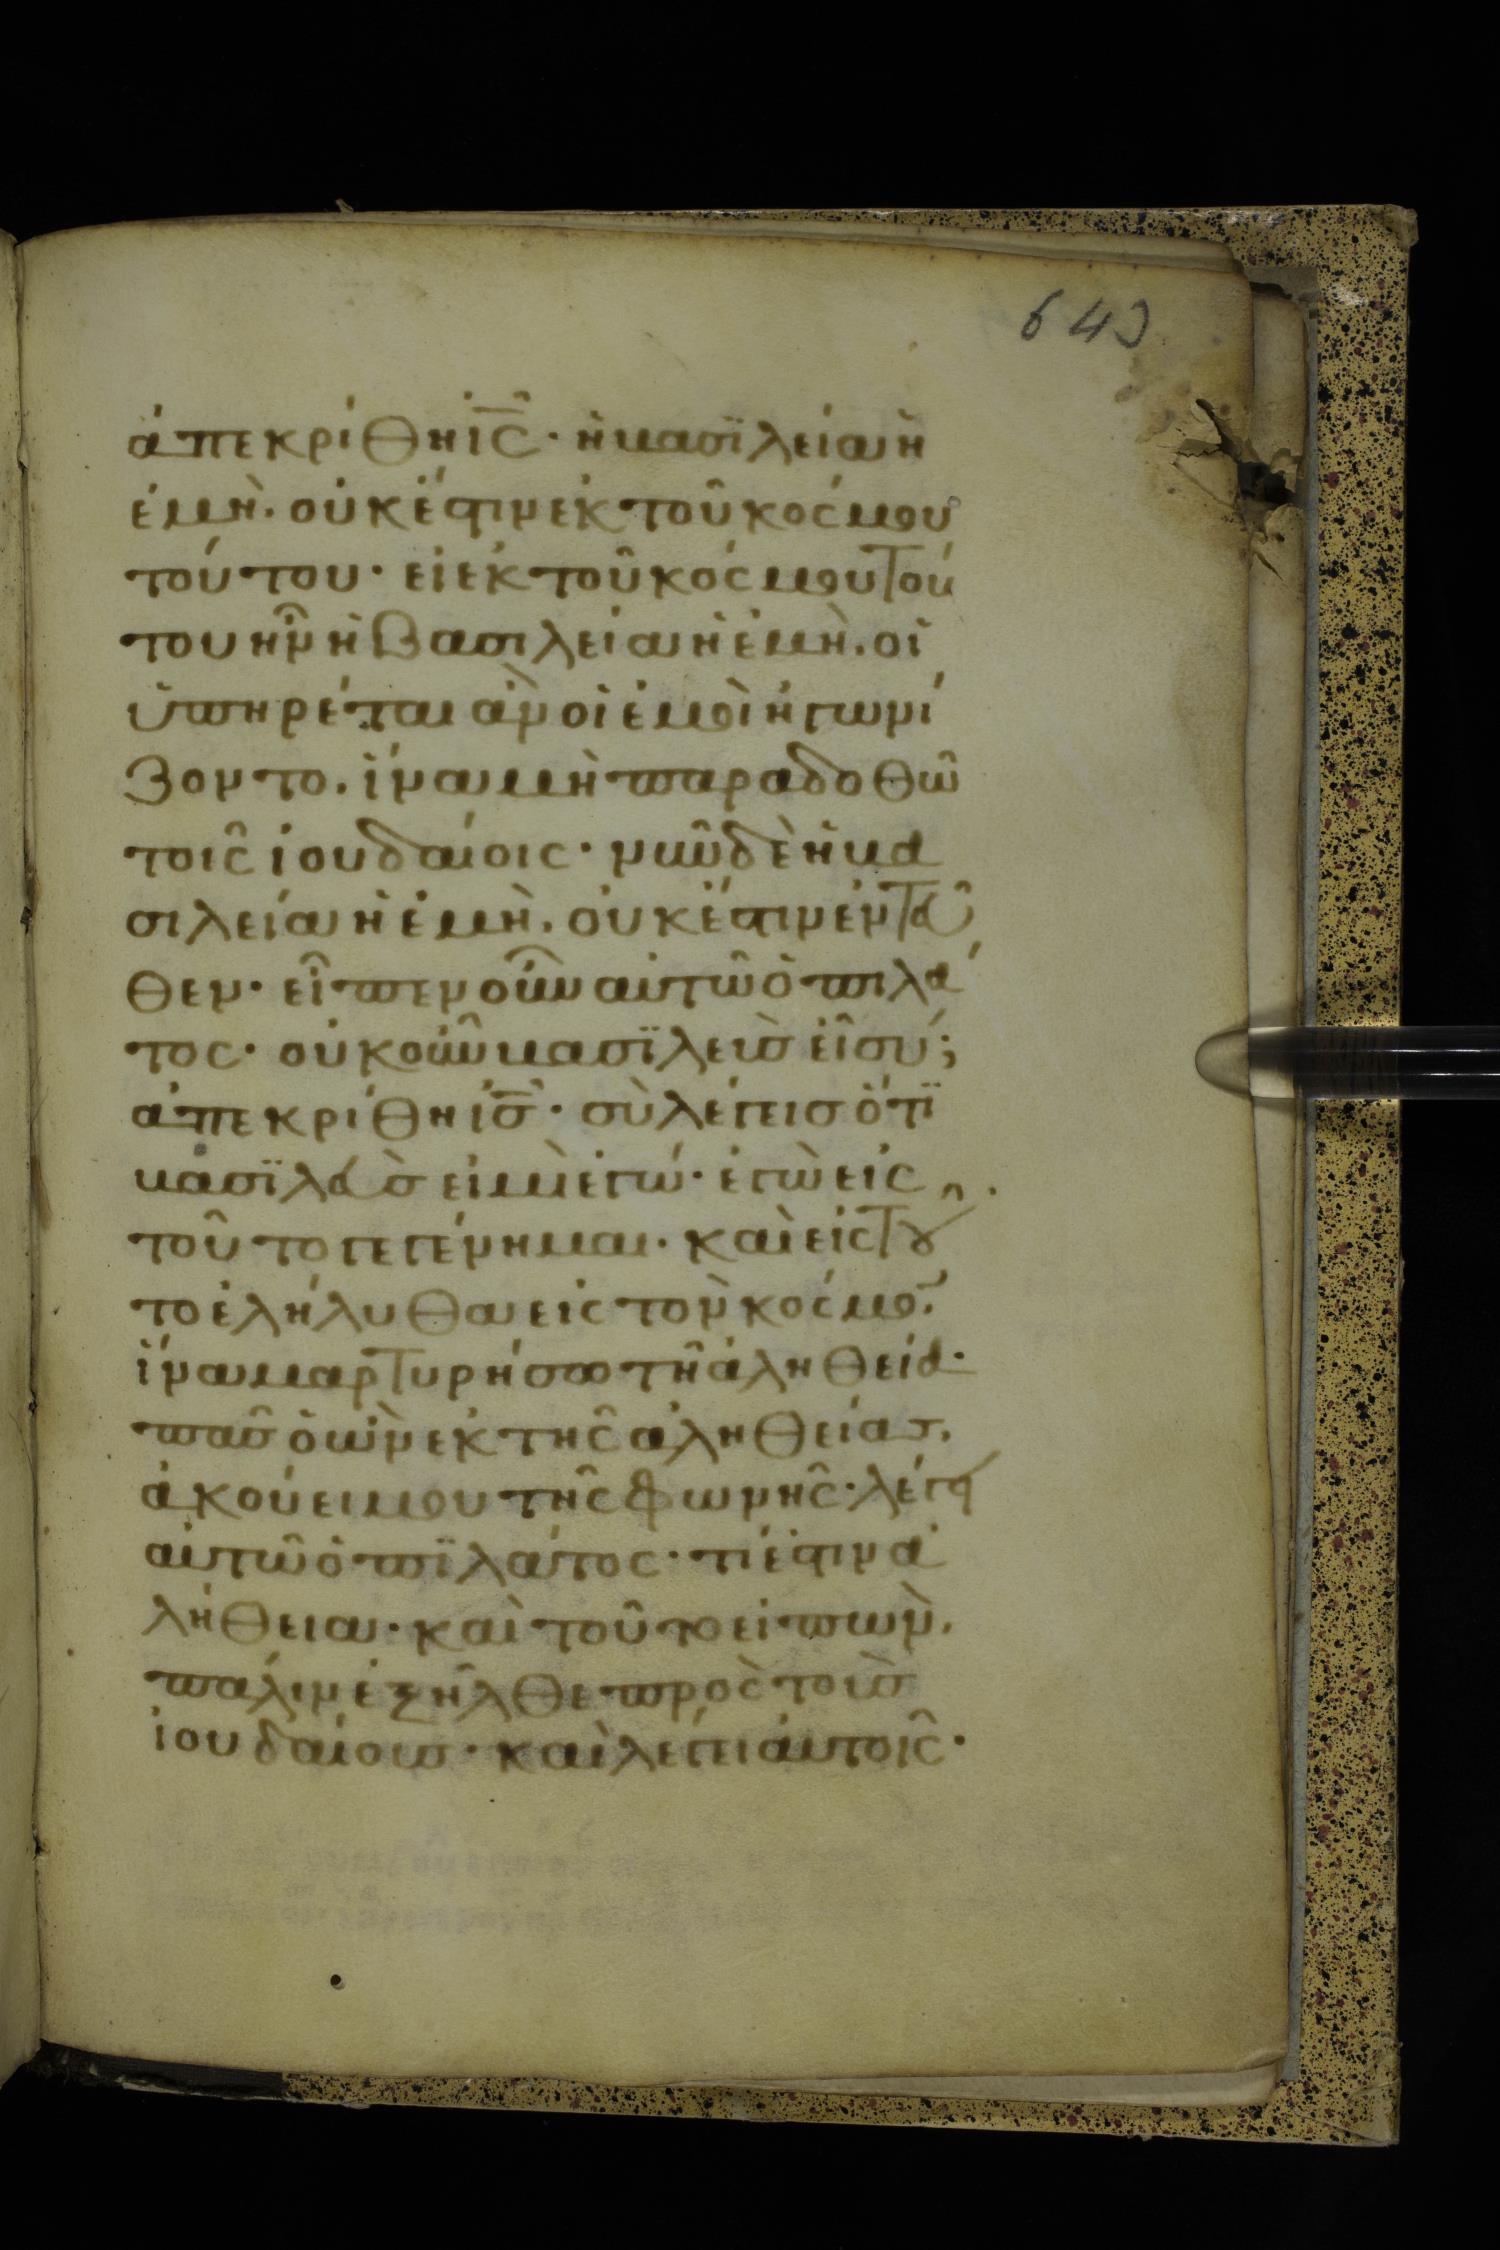 643
ἀπεκρίθη ἰς̅· ἡ βασϊλεία ἡ
ἐμὴ. οὐκ ἔστιν ἐκ τοῦ κόσμου
τούτου· εἰ ἐκ τοῦ κόσμου τού
του ἦν ἡ βασιλεία ἡ ἐμὴ. οἱ
ὑπηρέται ἀν οἱ ἐμοὶ ἠγωνί
ζοντο. ἵνα μὴ παραδοθῶ
τοῖς ἰουδαίοις· νῦν δὲ ἡ βα
σιλεία ἡ ἐμὴ. οὐκ ἔστιν ἐντεῦ
θεν· εἶπεν οὖν αὐτῶ ὁ πιλά
τος· οὐκοῦν βασϊλεὺς εἶ σύ;
ἀπεκρίθη ἰς̅· σὺ λέγεις ὅτϊ
βασϊλεὺς εἰμὶ ἐγώ· ἐγὼ εἰς
τοῦτο γεγένημαι· καὶ εἰς τοῦ
το ἐλήλυθα εἰς τὸν κόσμον.
ἵνα μαρτυρήσω τῆ ἀληθεία·
πᾶς ὁ ὢν ἐκ τῆς ἀληθείας.
ἀκούει μου τῆς φωνῆς· λέγει
αὐτῶ ὁ πϊλάτος· τί ἐστιν ἀ
λήθεια· καὶ τοῦτο εἰπὼν.
πάλιν ἐξῆλθε πρὸς τοὺς
ἰουδαίους· καὶ λέγει αὐτοῖς·